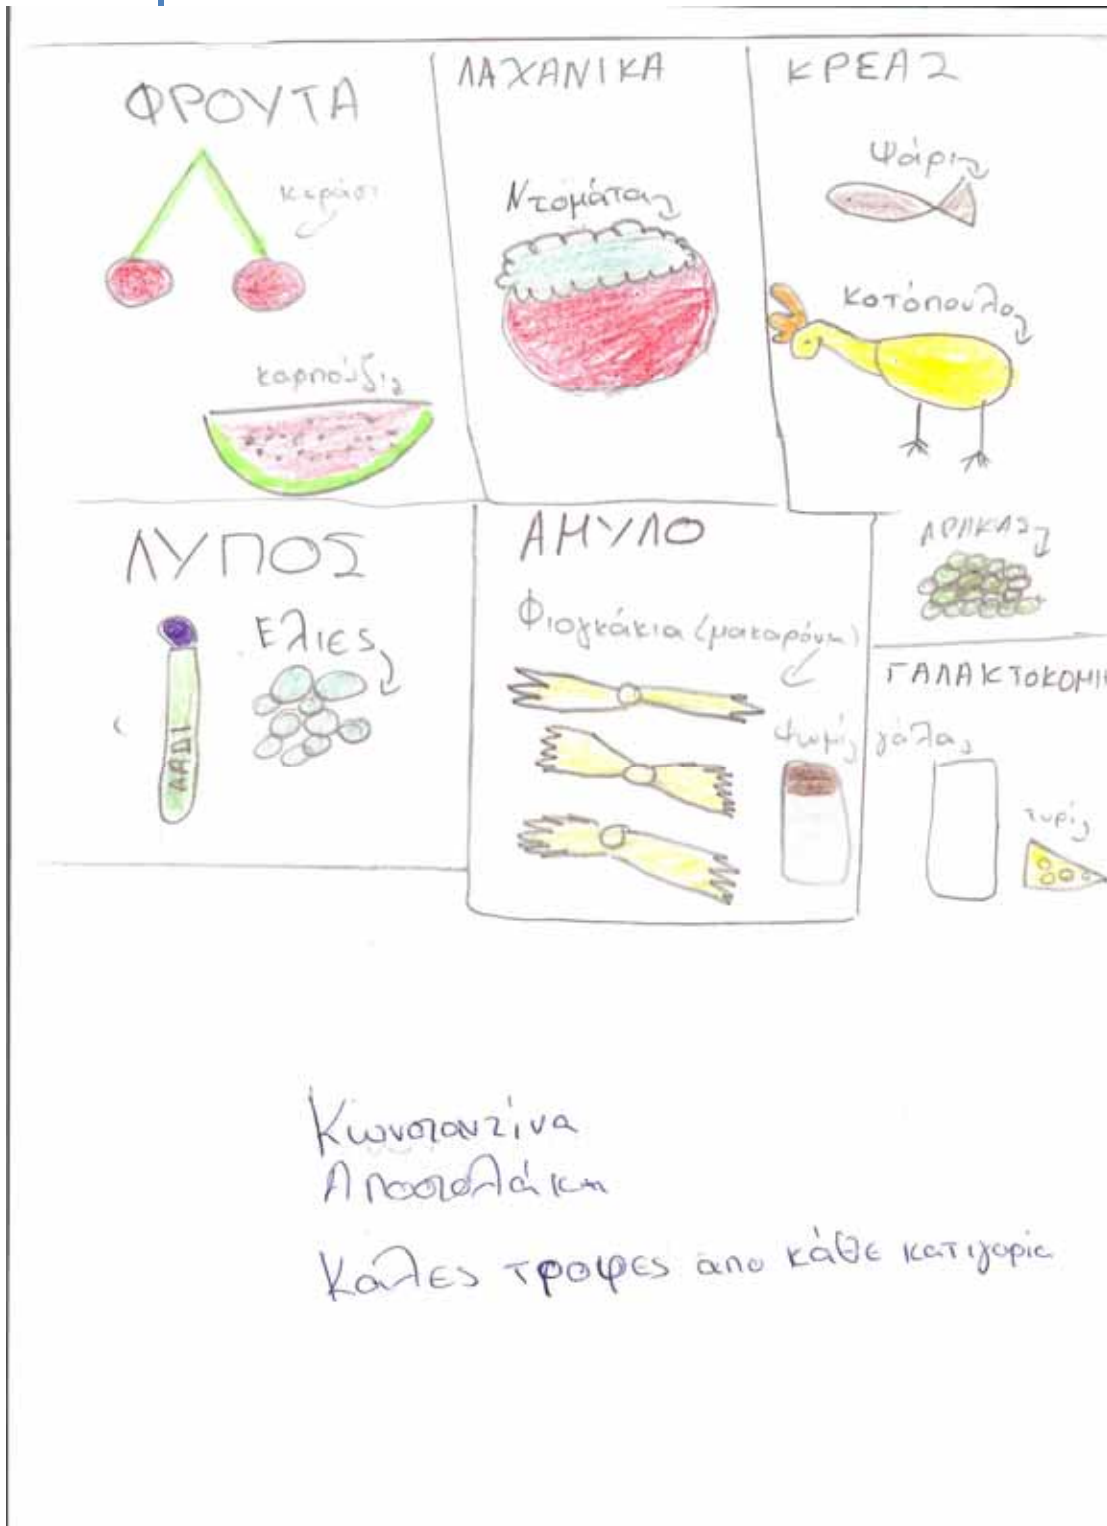 ΦΡΟΥΤΑ
κεράσι
καρπούζι
ΛΑΧΑΝΙΚΑ
Ντομάτα
ΚΡΕΑΣ
Ψάρι
κοτόπουλο
ΑΡΑΚΑΣ
ΛΥΠΟΣ
Ελιες
ΛΑΔΙ
ΑΜΥΛΟ
Φιογκάκια (μακαρόνια)
Ψωμί
ΓΑΛΑΚΤΟΚΟΜΗ
γάλα
τυρί
Κωνσταντίνα
Αποστολάκη
Κάλες τροφες απο κάθε κατιγορία